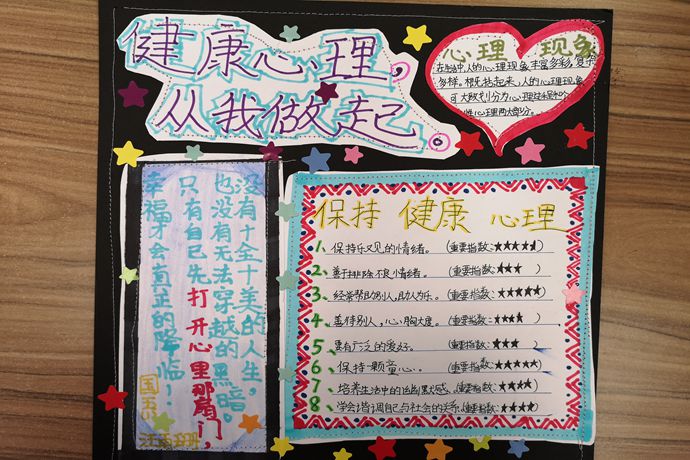 健康心理,
从我做起
心理 现象
在生活中,人的心理现象丰富多彩,复杂
多样。概括起来,人的心理现象
可大致划分为心理过程和个
性心理两大部分。
没有十全十美的人生
也没有无法穿越的黑暗。
只有自己先打开心里那扇门,
幸福才会真正的降临!
保持 健康 心理
1、保持乐观的情绪。(重要指数:★★★★★)
2、善于排除不良情绪。(重要指数:★★★)
3、经常帮助别人,助人为乐。(重要指数:★★★★★)
4、善待别人,心胸大度。(重要指数:★★★★)
5、要有广泛的爱好。(重要指数:★★★)
6、保持一颗童心。(重要指数:★★★★★)
7、培养生活中的幽默感。(重要指数:★★★)
8、学会谐调自己与社会的关系。(重要指数:★★★★)